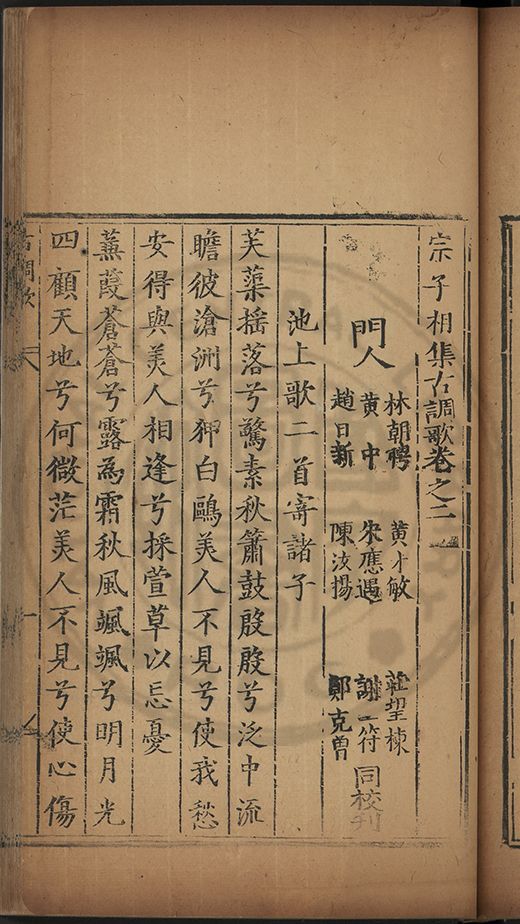 宗子相集古調歌卷之二
林朝聘 黄才敏 莊望棟
門人 黄中 朱應遇 謝一符 同校刊
趙日新 陳汝揚 鄭克曾
池上歌二首寄諸子
芙蕖揺落兮驚素秋簫鼓殷殷兮泛中流
瞻彼滄洲兮狎白鷗美人不見兮使我愁
安得與美人相逢兮採萱草以忘憂
蒹葭蒼蒼兮露為霜秋風颯颯兮明月光
四顧天地兮何微茫美人不見兮使心傷
古調歌
一